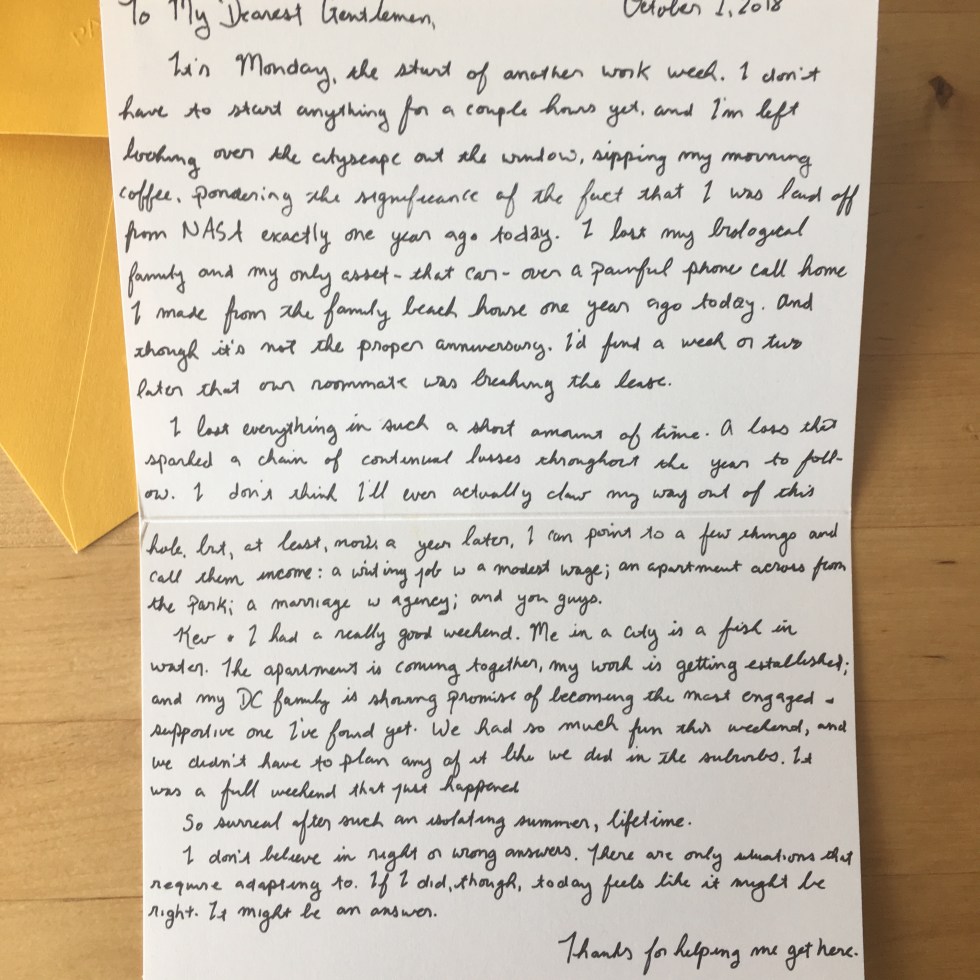 To My Dearest Gentlemen, October 1, 2018
It's Monday, the start of another work week. I don't
have to start anything for a couple hours yet, and I'm left
looking over the cityscape out the window, sipping my morning
coffee, pondering the significance of the fact that I was laid off
from NASA exactly one year ago today. I lost my biological
family and my only asset - that car - over a painful phone call home
I made from the family beach house one year ago today. And
though it's not the proper anniversary, I'd find a week or two
later that our roommate was breaking the lease.
I lost everything in such a short amount of time. A loss that
sparked a chain of continual losses throughout the year to foll-
ow. I don't think I'll ever actually claw my way out of this
hole, but, at least, now a year later, I can point to a few things and
call them income: a writing job w a modest wage; an apartment across from
the Park; a marriage w agency; and you guys.
Kev + I had a really good weekend. Me in a city is a fish in
water. The apartment is coming together, my work is getting established;
and my DC family is showing promise of becoming the most engaged +
supportive one I've found yet. We had so much fun this weekend, and
we didn't have to plan any of it like we did in the suburbs. It
was a full weekend that just happened
So surreal after such an isolating summer, lifetime.
I don't believe in right or wrong answers. There are only situations that
require adapting to. If I did, though, today feels like it might be
right. It might be an answer.
Thanks for helping me get here.